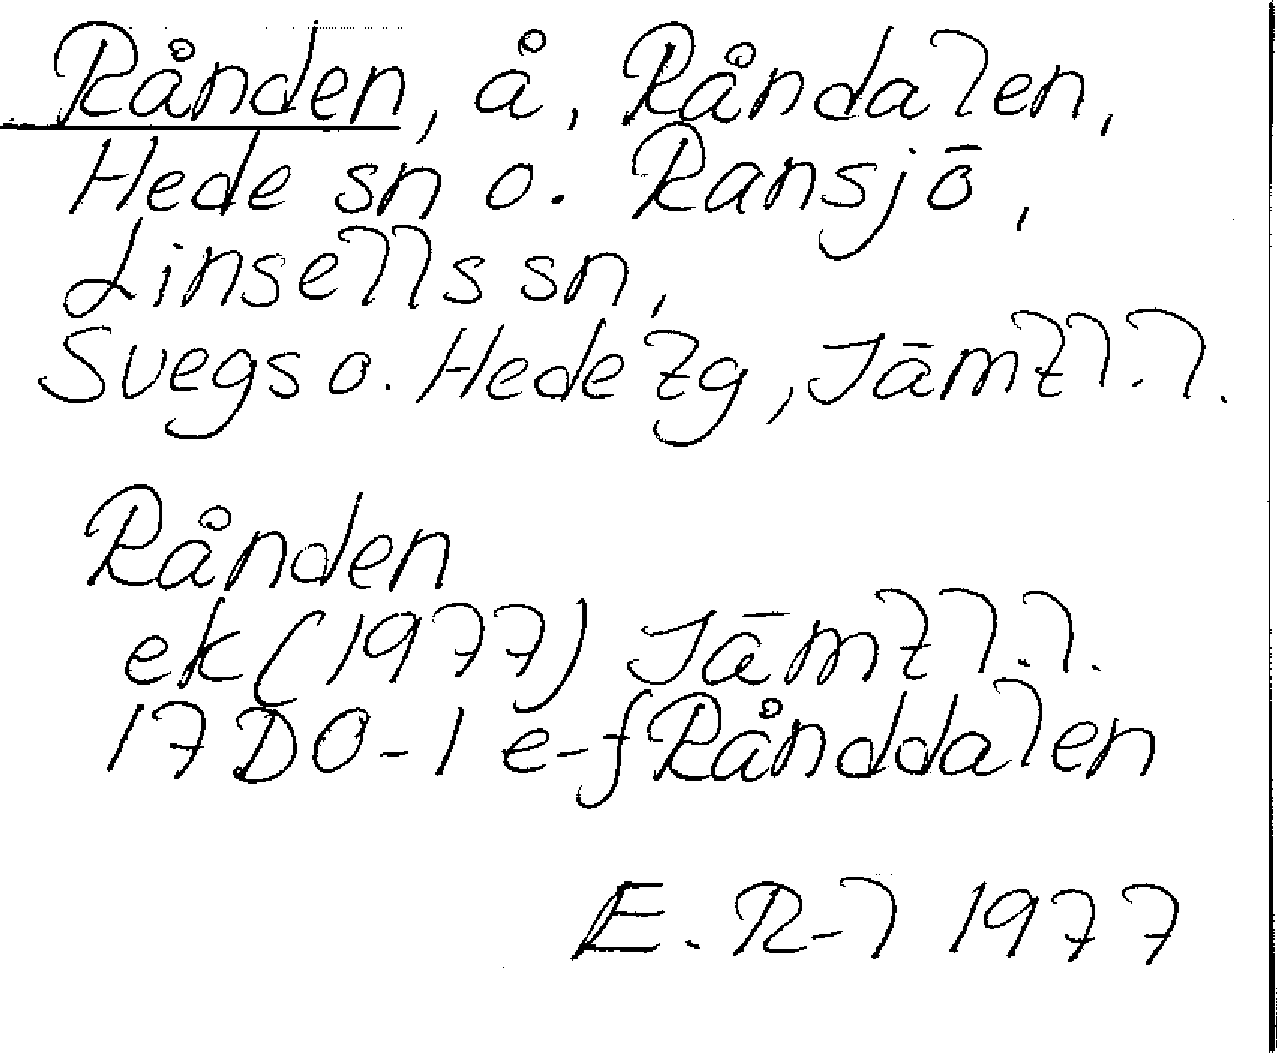 Rånden, å, Råndalen,
Hede sn o. Ransjö,
Linsells sn,
Svegs o. Hede tg, Jämtl.l.
Rånden
ek (1977) Jämtl.l.
17 D 0-1 e-f Rånddalen
E. R-l 1977